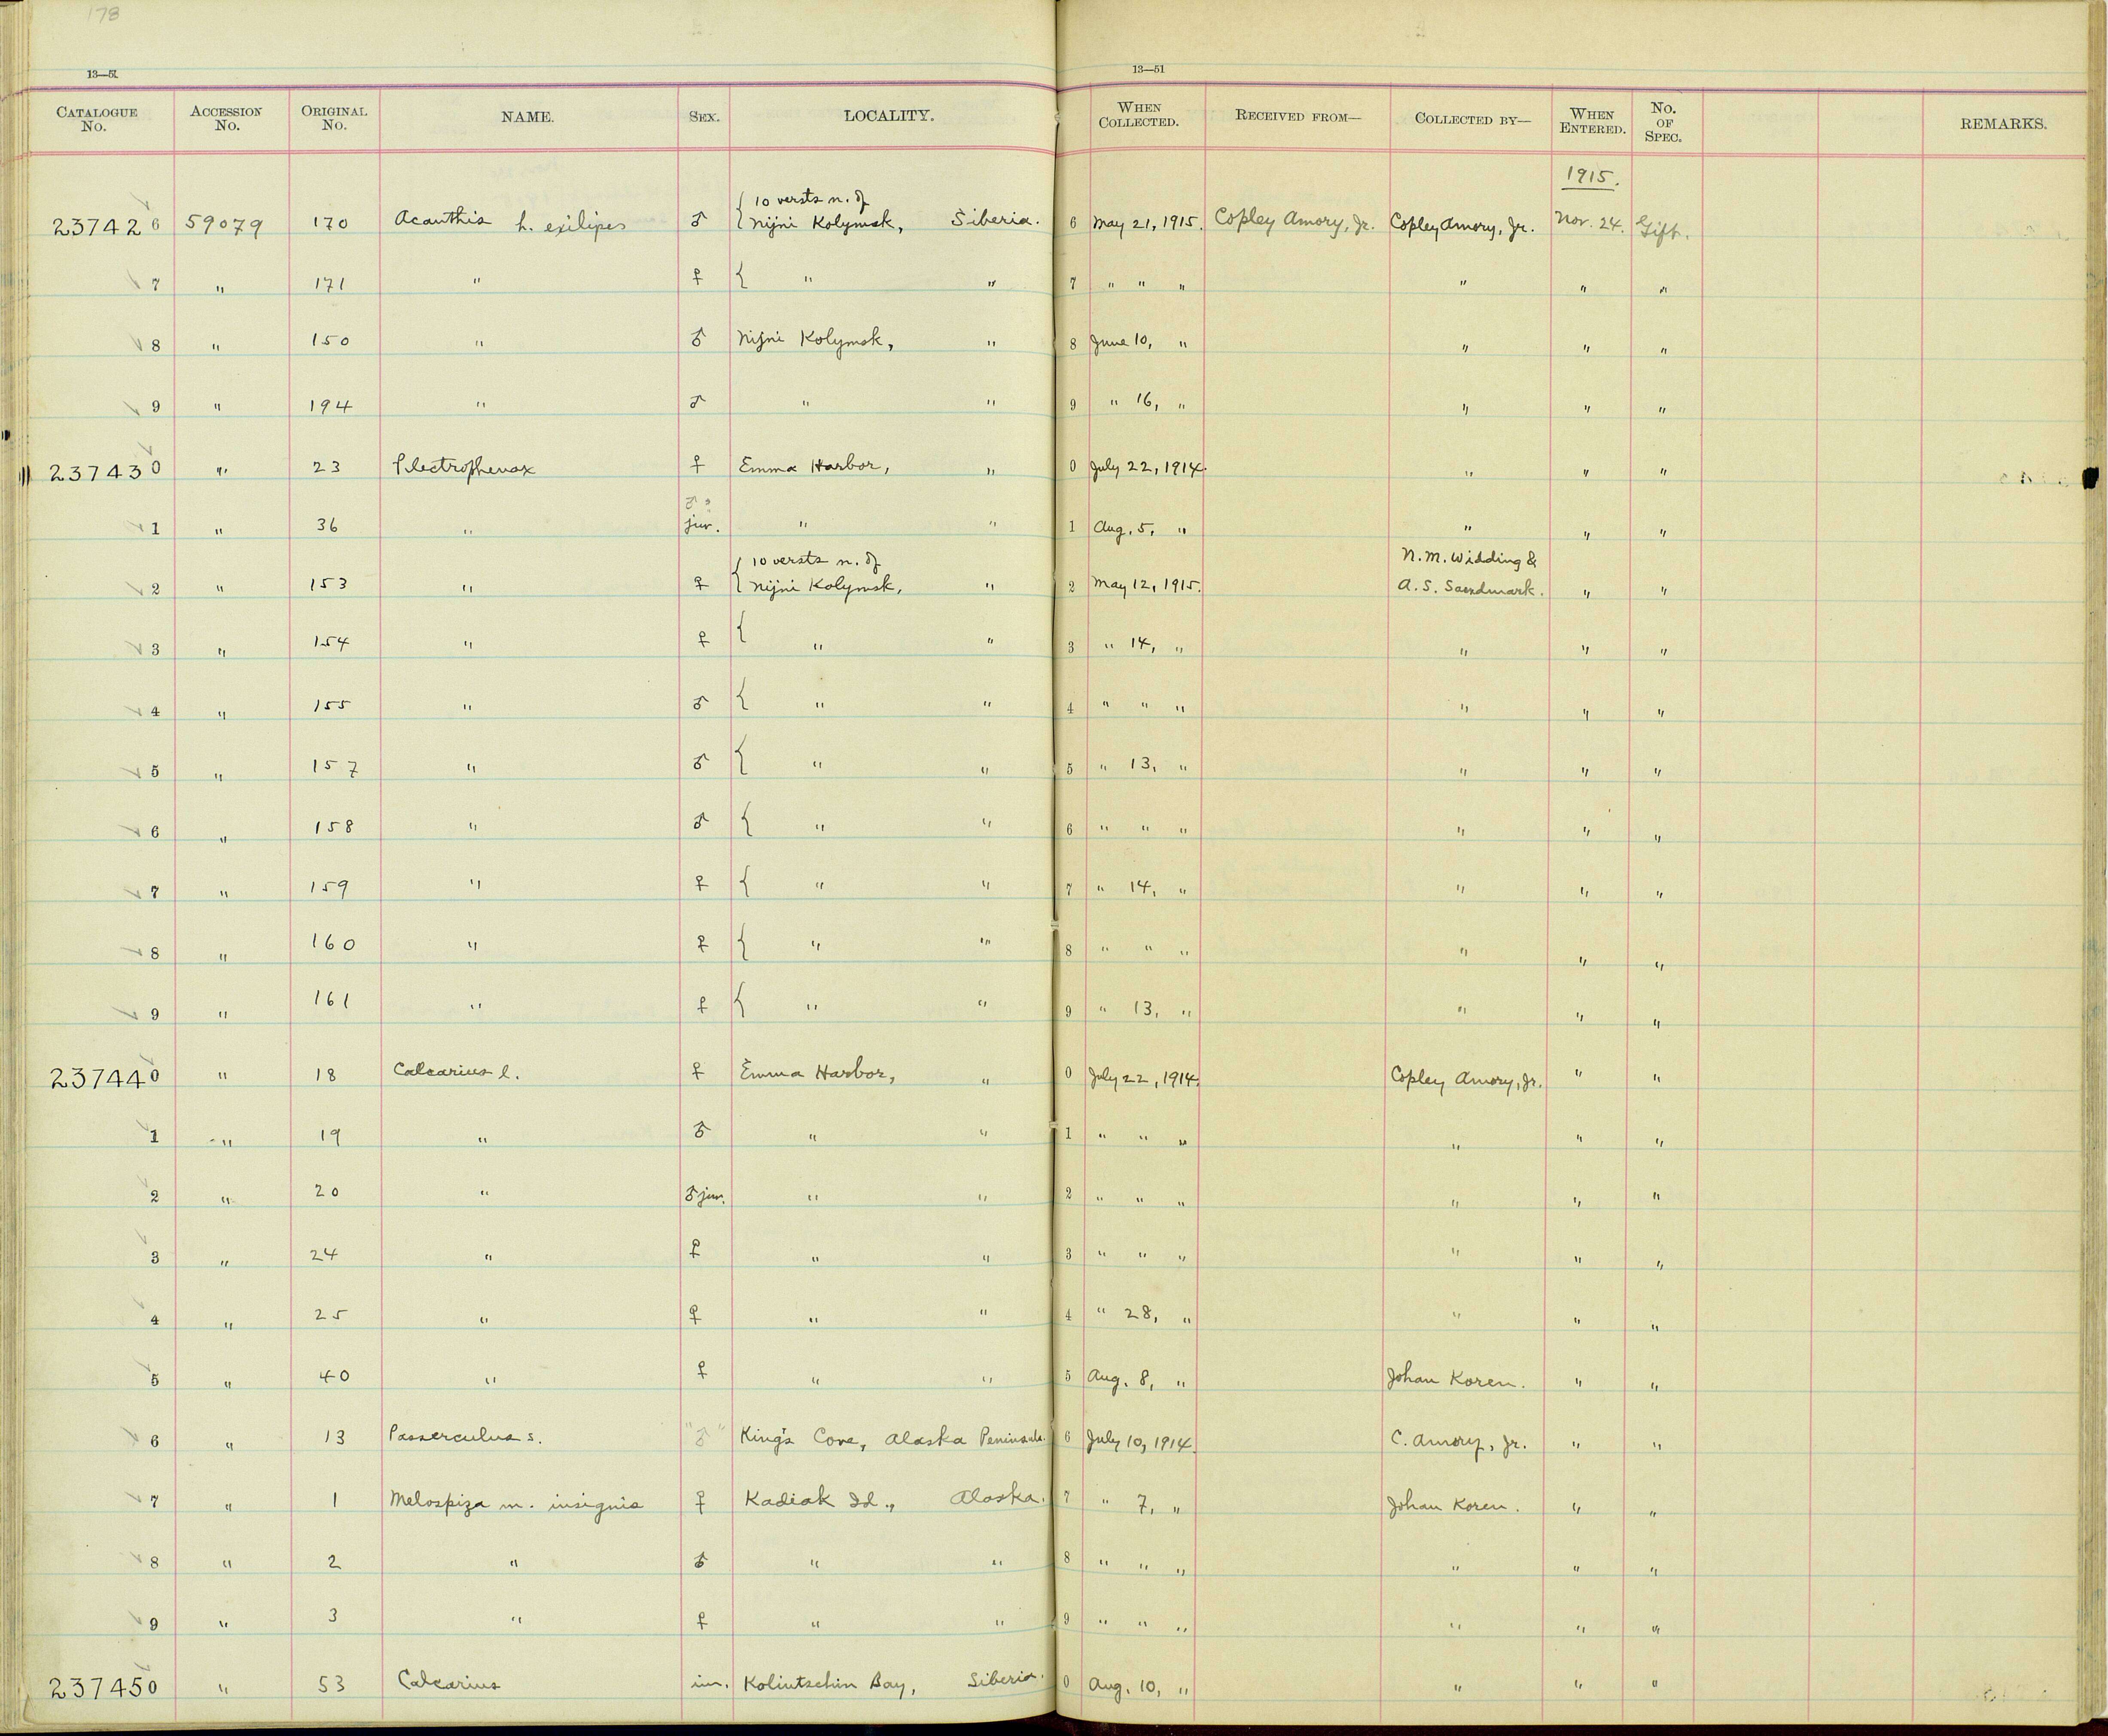 178
13—51
13—51
CATALOGUE No. ACCESSION No. ORIGINAL No. NAME. SEX. LOCALITY. WHEN COLLECTED. RECEIVED FROM— COLLECTED BY— WHEN ENTERED. No. OF SPEC. REMARKS.
1915.
{ 10 versts n. of
237426 59079 170 Acanthis h. exilipes ♂ Nijni Kolymsk, Siberia. 6 May 21, 1915. Copley Amory, Jr. Copley Amory, Jr. Nov. 24. Gift.
7 " 171 " ♀ { " " 7 " " " " " "
8 " 150 " ♂ Nijni Kolymsk, " 8 June 10, " " " "
9 " 194 " ♂ " " 9 " 16, " " " "
237430 " 23 Plectrophenax ♀ Emma Harbor, " 0 July 22, 1914. " " "
♂ ?
1 " 36 " juv. " " 1 Aug. 5, " " " "
{ 10 versts n. of N. M. Widding &
2 " 153 " ♀ Nijni Kolymsk, " 2 May 12, 1915. A. S. Sandmark. " "
3 " 154 " ♀ { " " 3 " 14, " " " "
4 " 155 " ♂ { " " 4 " " " " " "
5 " 157 " ♂ { " " 5 " 13, " " " "
6 " 158 " ♂ { " " 6 " " " " " "
7 " 159 " ♀ { " " 7 " 14, " " " "
8 " 160 " ♀ { " " 8 " " " " " "
9 " 161 " ♀ { " " 9 " 13, " " " "
237440 " 18 Calcarius l. ♀ Emma Harbor, " 0 July 22, 1914. Copley Amory, Jr. " "
1 " 19 " ♂ " " 1 " " " " " "
2 " 20 " ♂ juv. " " 2 " " " " " "
3 " 24 " ♀ " " 3 " " " " " "
4 " 25 " ♀ " " 4 " 28, " " " "
5 " 40 " ♀ " " 5 Aug. 8, " Johan Koren. " "
6 " 13 Passerculus s. "♂" King's Cove, Alaska Peninsula. 6 July 10, 1914. C. Amory, Jr. " "
7 " 1 Melospiza m. insignis ♀ Kadiak Id., Alaska. 7 " 7, " Johan Koren. " "
8 " 2 " ♂ " " 8 " " " " " "
9 " 3 " ♀ " " 9 " " " " " "
237450 " 53 Calcarius im. Koliutschin Bay, Siberia. 0 Aug. 10, " " " "